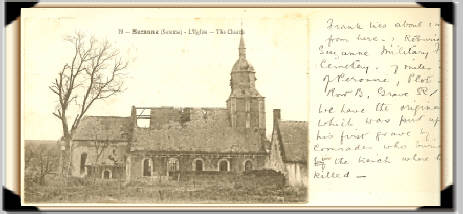 19 – Suzanne (Somme) - L'Eglise – The Church
Frank lies about 1
from here, :
Suzanne Military
Cemetery. 7 miles
of Peronne, Plot
Row B, Grave
We have the original
which was put up
his first grave by
Comrades who
by the trench where
killed –